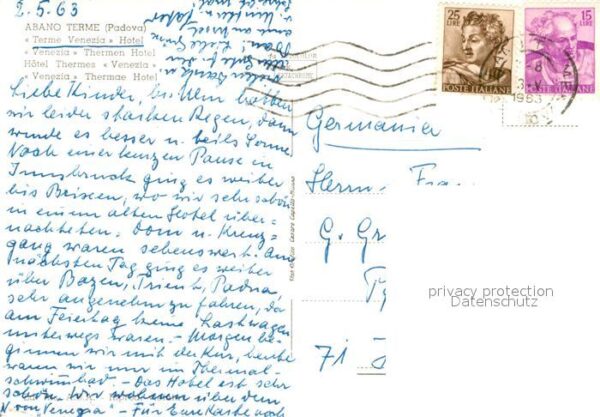 2.5.63
ABANO TERME (Padova)
« Terme Venezia » Hotel
« Venezia » Thermen Hotel
Hôtel Thermes « Venezia »
« Venezia » Thermae Hotel
Liebe Kinder, bis Ulm hatten
wir leider starken Regen, dann
wurde es besser u. teils Sonne
Nach einer kurzen Pause in
Innsbruck ging es weiter
bis Brixen, wo wir sehr schön
in einem alten Hotel über-
nachteten. Dom u. Kreuz-
gang waren sehenswert. Am
nächsten Tag ging es weiter
über Bozen, Trient, Padua
sehr angenehm zu fahren, da
am Feiertag keine Lastwagen
unterwegs waren. - Morgen be-
ginnen wir mit der Kur, heute
waren wir nur im Thermal-
schwimmbad. - Das Hotel ist sehr
schön. Wir wohnen über dem
V von Venezia - Für Eure Karte noch
25
LIRE
POSTE ITALIANE
15
LIRE
POSTE ITALIANE
1963
Germania
Herrn Fra
G. Gr
71
privacy protection
Datenschutz